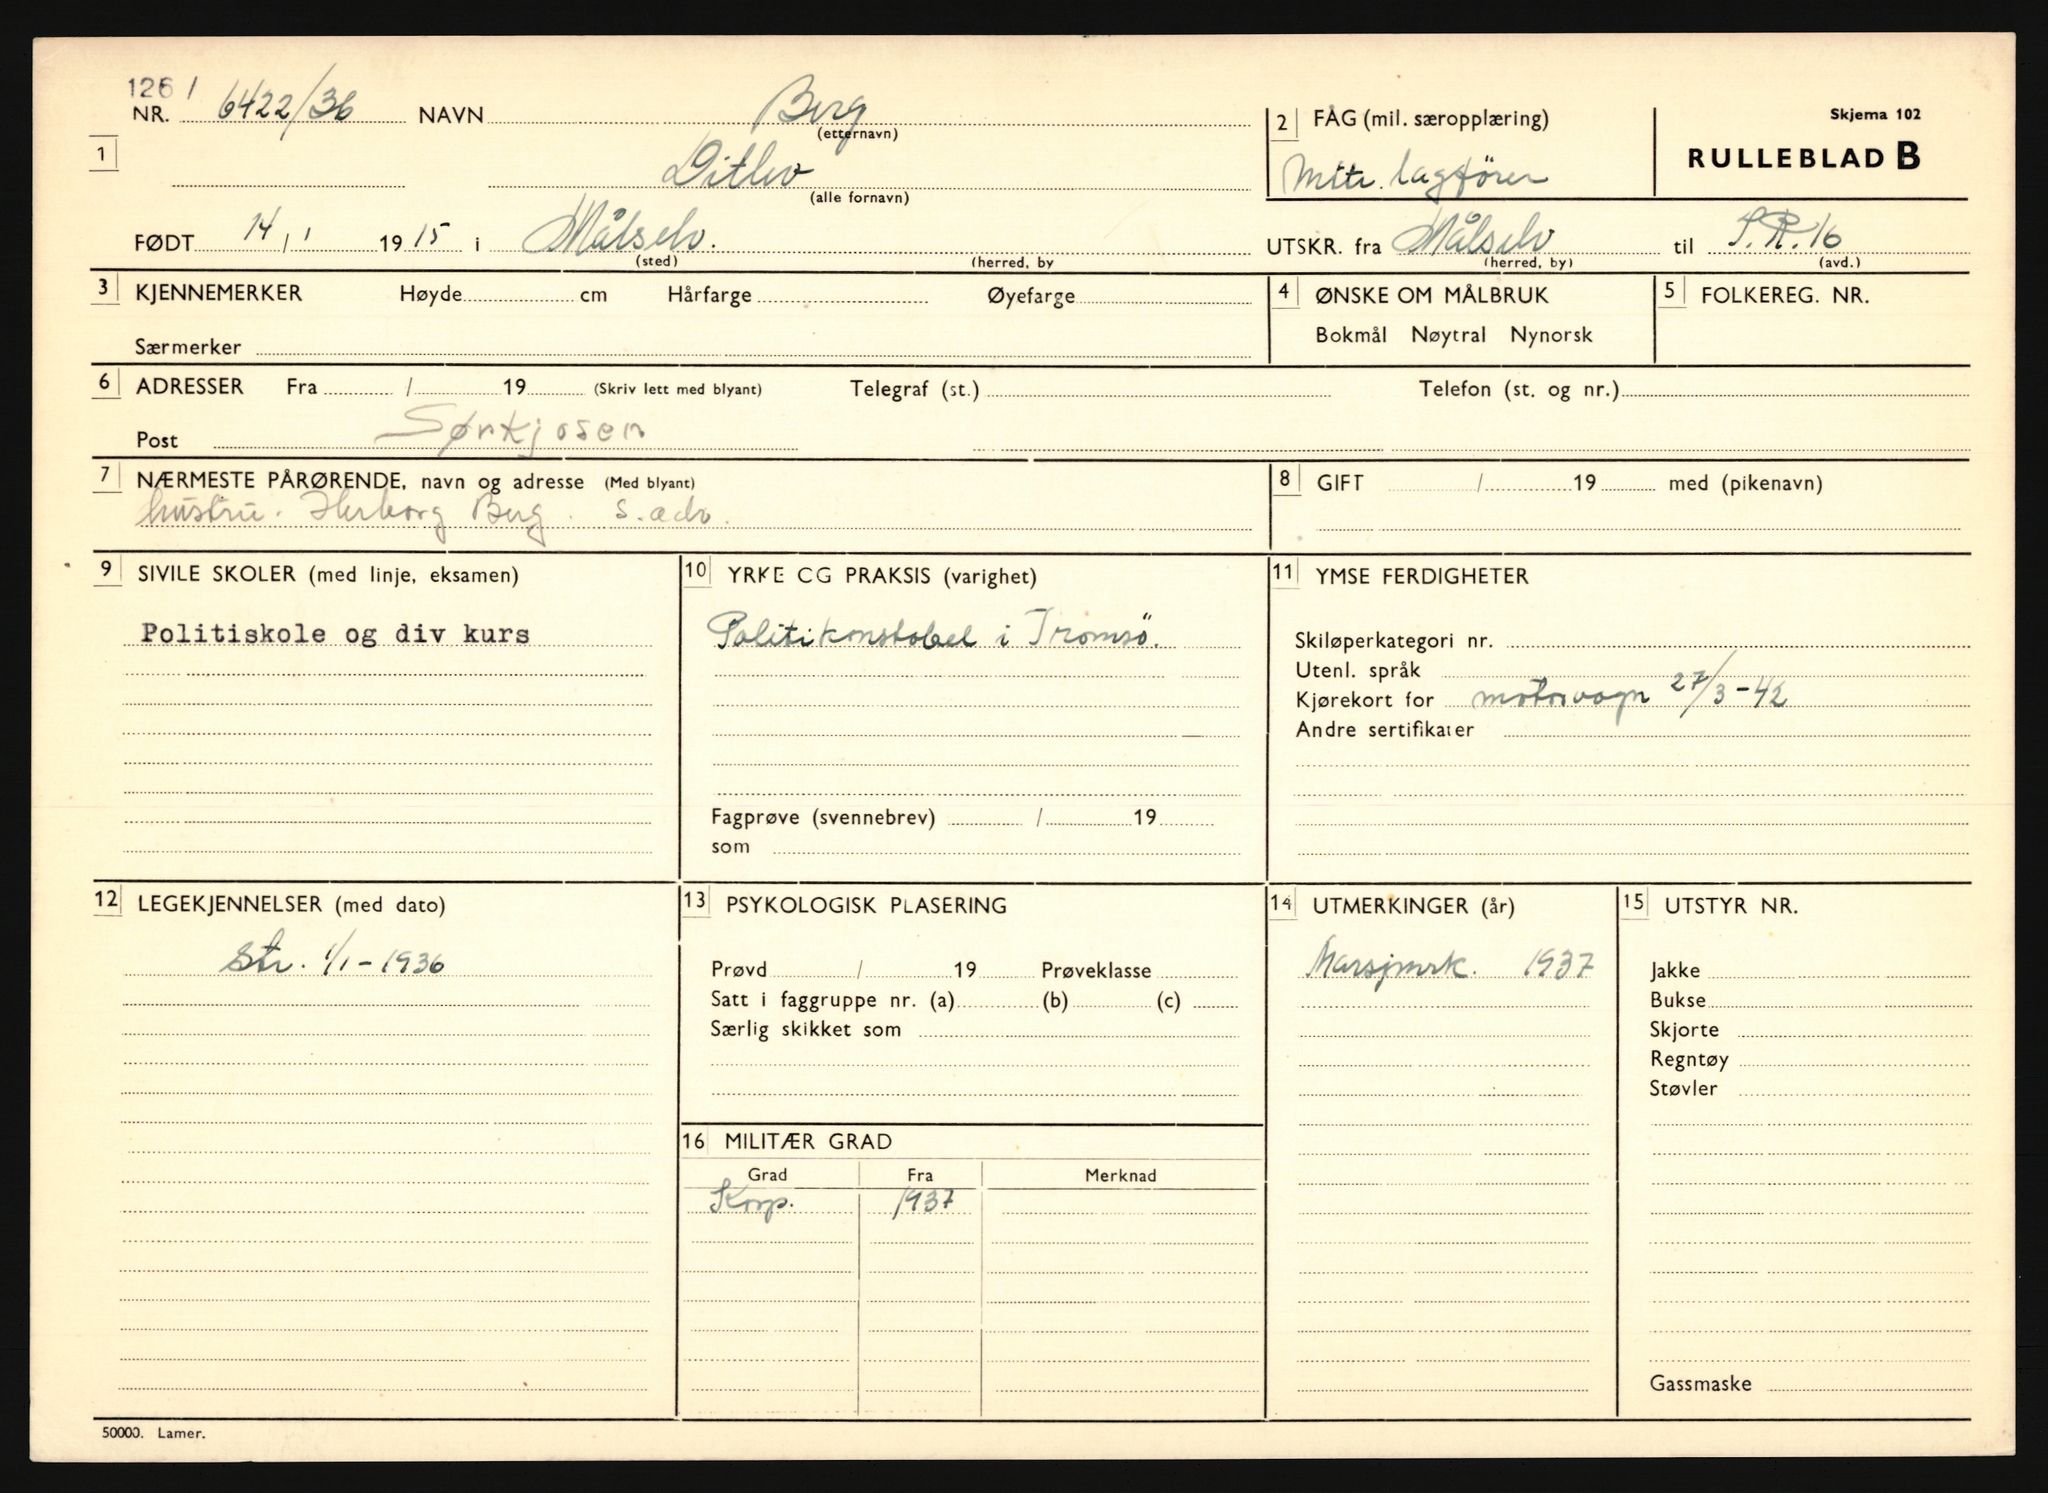 126 /
NR. 6422/36 NAVN Berg
(etternavn)
2 FAG (mil. særopplæring)
Skjema 102
RULLEBLAD B
1
Ditlev
(alle fornavn)
Mitr. lagfører
FØDT 14 / 1 1915 i Målselv.
(sted) (herred, by
UTSKR. fra Målselv til I.R. 16
(herred, by) (avd.)
3 KJENNEMERKER Høyde cm Hårfarge Øyefarge
Særmerker
4 ØNSKE OM MÅLBRUK
Bokmål Nøytral Nynorsk
5 FOLKEREG. NR.
6 ADRESSER Fra / 19 (Skriv lett med blyant) Telegraf (st.) Telefon (st. og nr.)
Post Sørkjosen
7 NÆRMESTE PÅRØRENDE, navn og adresse (Med blyant)
hustru. Herborg Berg. s. adr.
8 GIFT / 19 med (pikenavn)
9 SIVILE SKOLER (med linje, eksamen)
Politiskole og div kurs
10 YRKE OG PRAKSIS (varighet)
Politikonstabel i Tromsö.
Fagprøve (svennebrev) / 19
som
11 YMSE FERDIGHETER
Skiløperkategori nr.
Utenl. språk
Kjørekort for motorvogn 27/3-42
Andre sertifikater
12 LEGEKJENNELSER (med dato)
Str. 1/1-1936
13 PSYKOLOGISK PLASERING
Prøvd / 19 Prøveklasse
Satt i faggruppe nr. (a) (b) (c)
Særlig skikket som
14 UTMERKINGER (år)
Marsjmrk. 1937
15 UTSTYR NR.
Jakke
Bukse
Skjorte
Regntøy
Støvler
Gassmaske
16 MILITÆR GRAD
Grad Fra Merknad
Korp. 1937
50000. Lamer.